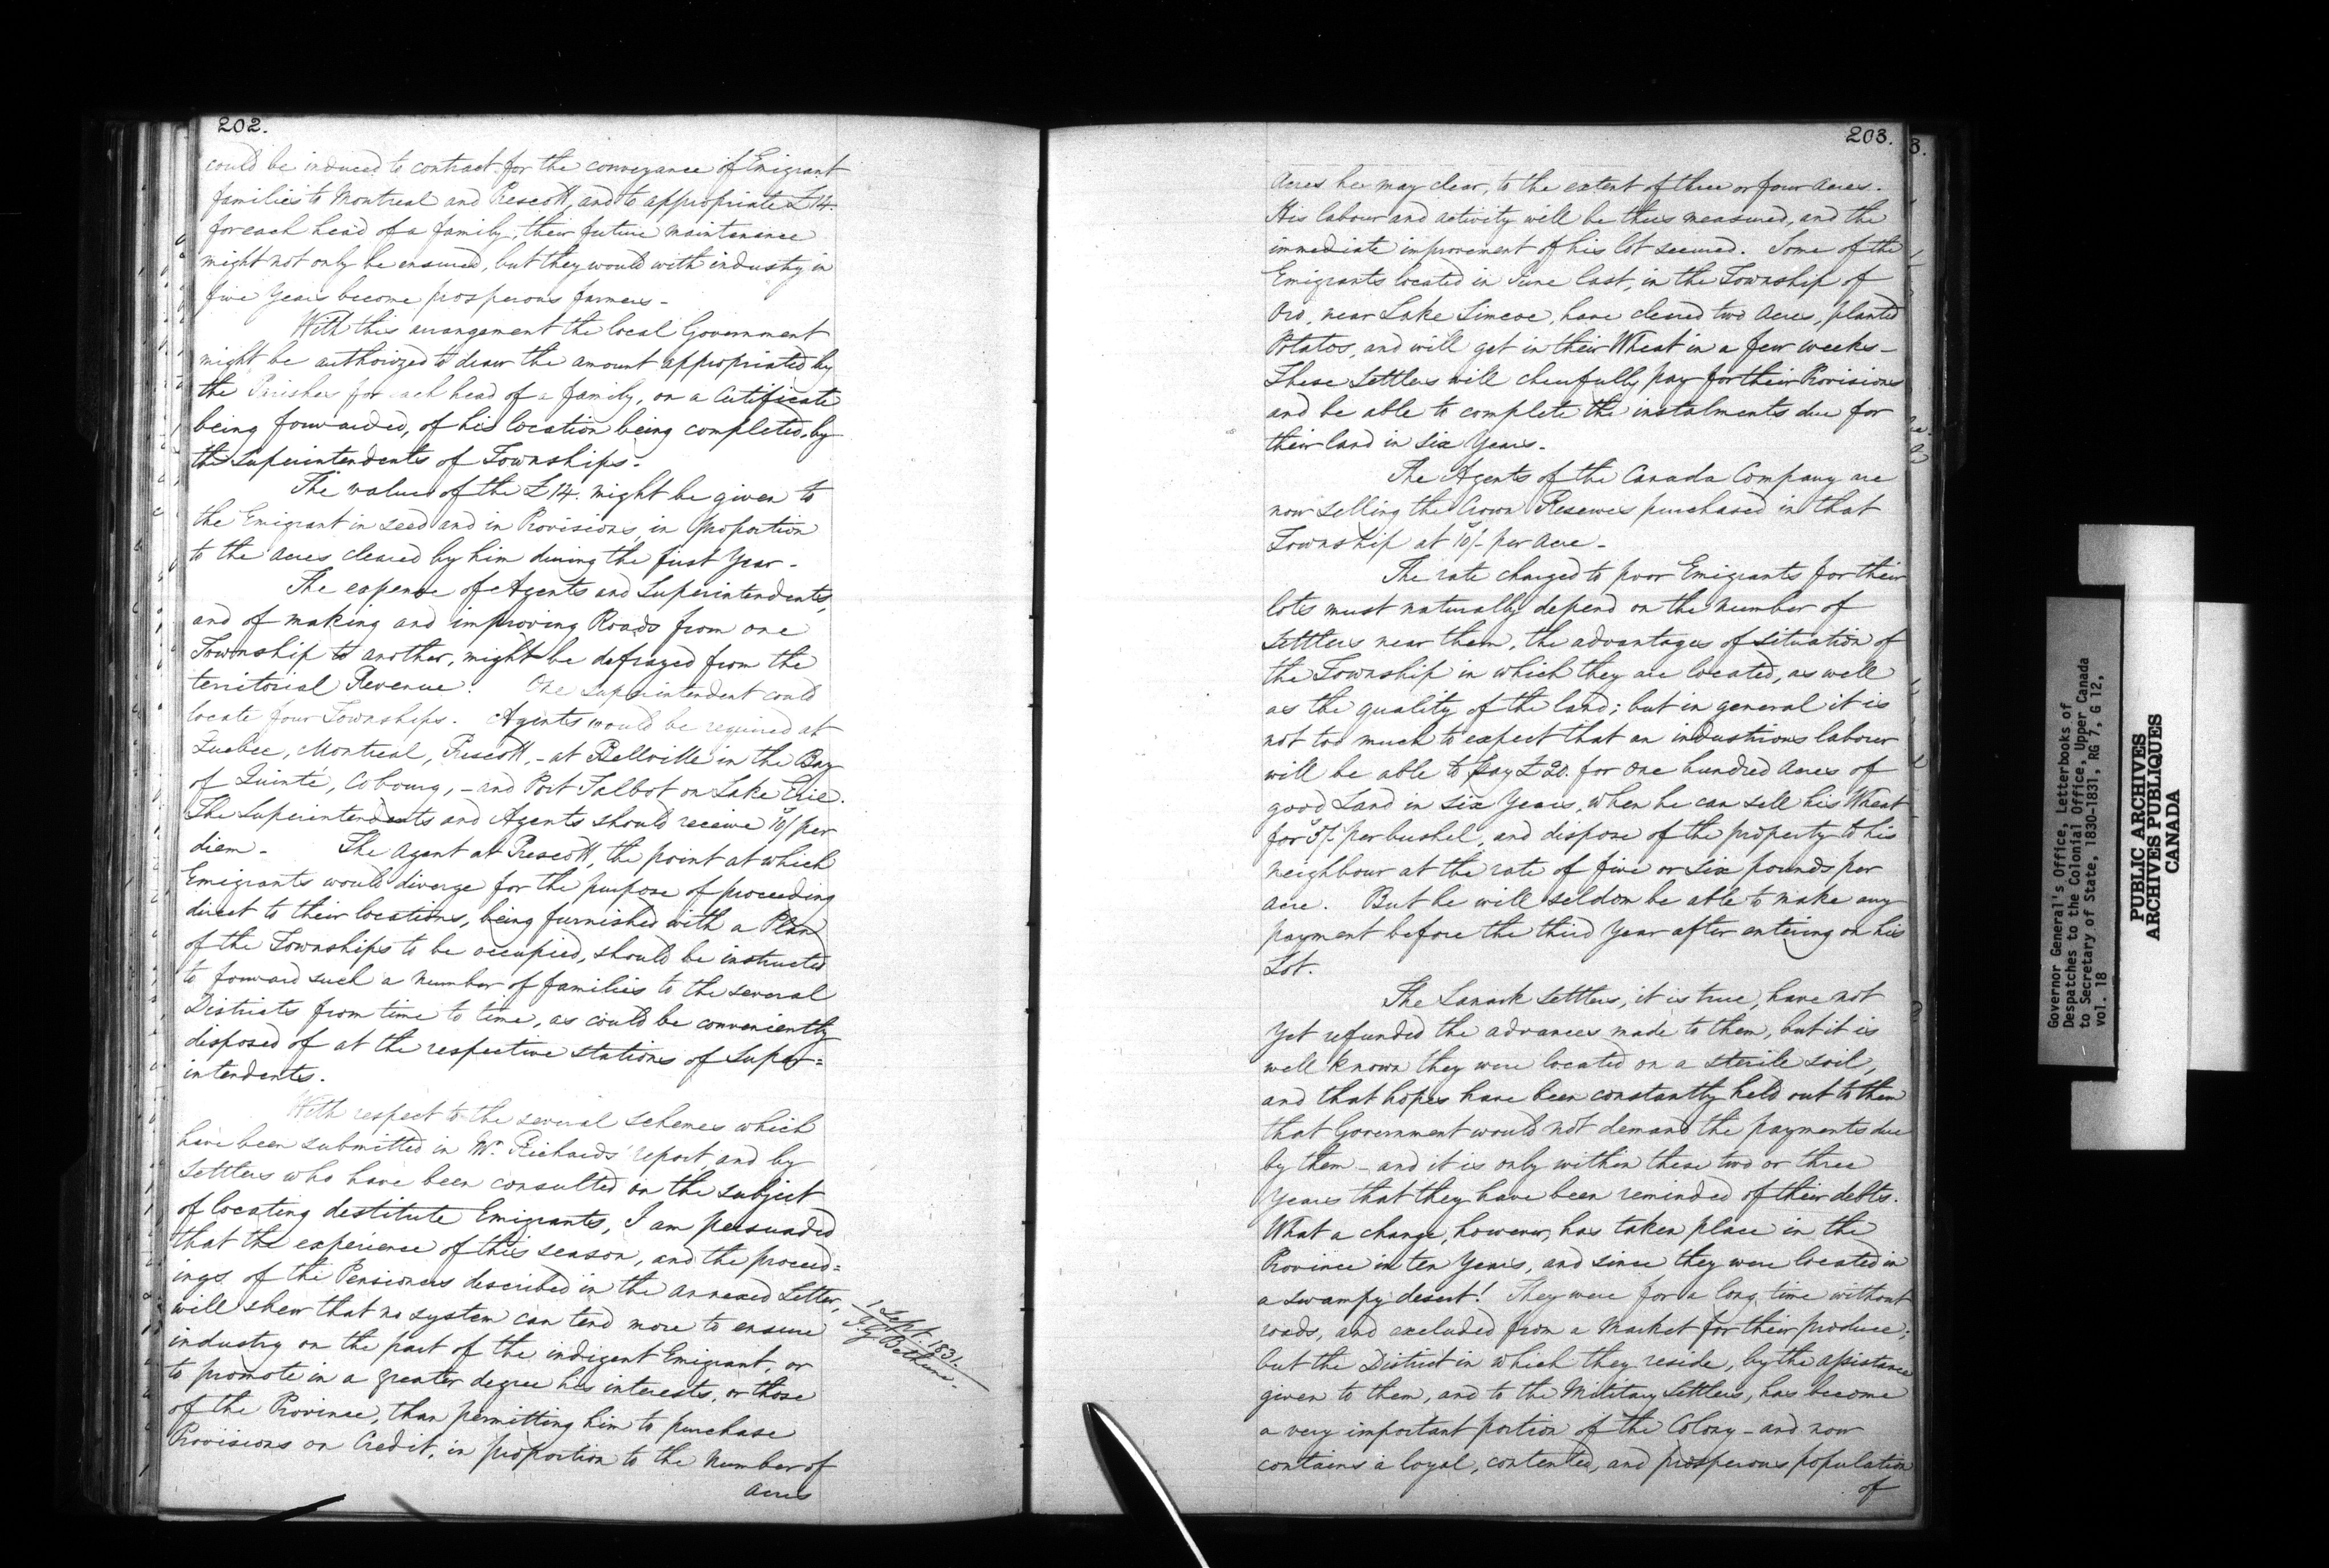 202.
could be induced to contract for the conveyance of Emigrant
families to Montreal and Prescott, and to appropriate £14.
for each head of a family, their future maintenance
might not only be ensured, but they would with industry in
five years become prosperous farmers -
With this arrangement the local Government
might be authorized to draw the amount appropriated by
the Parishes for each head of a family, on a Certificate
being forwarded, of his location being completed, by
the Superintendents of Townships.
The value of the £14. might be given to
the Emigrant in seed and in Provisions, in proportion
to the acres cleared by him during the first year -
The expense of Agents and Superintendents,
and of making and improving Roads from one
Township to another, might be defrayed from the
territorial Revenue. One Superintendent could
locate four Townships. Agents would be required at
Quebec, Montreal, Prescott, - at Bellville in the Bay
of Quinté, Cobourg, - and Port Talbot on Lake Erie.
The Superintendents and Agents should receive 10/ per
diem - The Agent at Prescott, the point at which
Emigrants would diverge for the purpose of proceeding
direct to their locations, being furnished with a Plan
of the Townships to be occupied, should be instructed
to forward such a number of families to the several
Districts from time to time, as could be conveniently
disposed of at the respective stations of Super=
intendents.
With respect to the several schemes which
have been submitted in Mr. Richards' report, and by
Settlers who have been consulted on the subject
of locating destitute Emigrants, I am persuaded
that the experience of this season, and the proceed=
ings of the Pensioners described in the annexed Letter,
will shew that no system can tend more to ensure
industry on the part of the indigent Emigrant, or
to promote in a greater degree his interests, or those
of the Province, than permitting him to purchase
Provisions on Credit, in proportion to the number of
acres
1 Sept. 1831.
Bethune -
203.
acres he may clear, to the extent of three or four acres.
His labour and activity will be thus measured, and the
immediate improvement of his lot secured. Some of the
Emigrants located in June last, in the Township of
Oro, near Lake Simcoe, have cleared two acres, planted
Potatos, and will get in their Wheat in a few weeks -
These Settlers will cheerfully pay for their Provisions
and be able to complete the instalments due for
their land in six years.
The Agents of the Canada Company are
now selling the Crown Reserves purchased in that
Township at 10/- per acre -
The rate charged to poor Emigrants for their
lots must naturally depend on the number of
Settlers near them, the advantages of situation of
the Township in which they are located, as well
as the quality of the land; but in general it is
not too much to expect that an industrious labourer
will be able to pay £20. for one hundred acres of
good Land in six years, when he can sell his Wheat
for 5/- per bushel, and dispose of the property to his
neighbour at the rate of five or six pounds per
acre. But he will seldom be able to make any
payment before the third year after entering on his
Lot.
The Lanark Settlers, it is true, have not
yet refunded the advances made to them, but it is
well known they were located on a sterile soil,
and that hopes have been constantly held out to them
that Government would not demand the payments due
by them - and it is only within these two or three
years that they have been reminded of their debts.
What a change, however, has taken place in the
Province in ten years, and since they were located in
a swampy desert! They were for a long time without
roads, and excluded from a Market for their produce;
but the District in which they reside, by the assistance
given to them, and to the Military Settlers, has become
a very important portion of the Colony - and now
contains a loyal, contented, and prosperous population
of
Governor General's Office, Letterbooks of
Despatches to the Colonial Office, Upper Canada
to Secretary of State, 1830-1831, RG 7, G 12,
vol. 18
PUBLIC ARCHIVES
ARCHIVES PUBLIQUES
CANADA